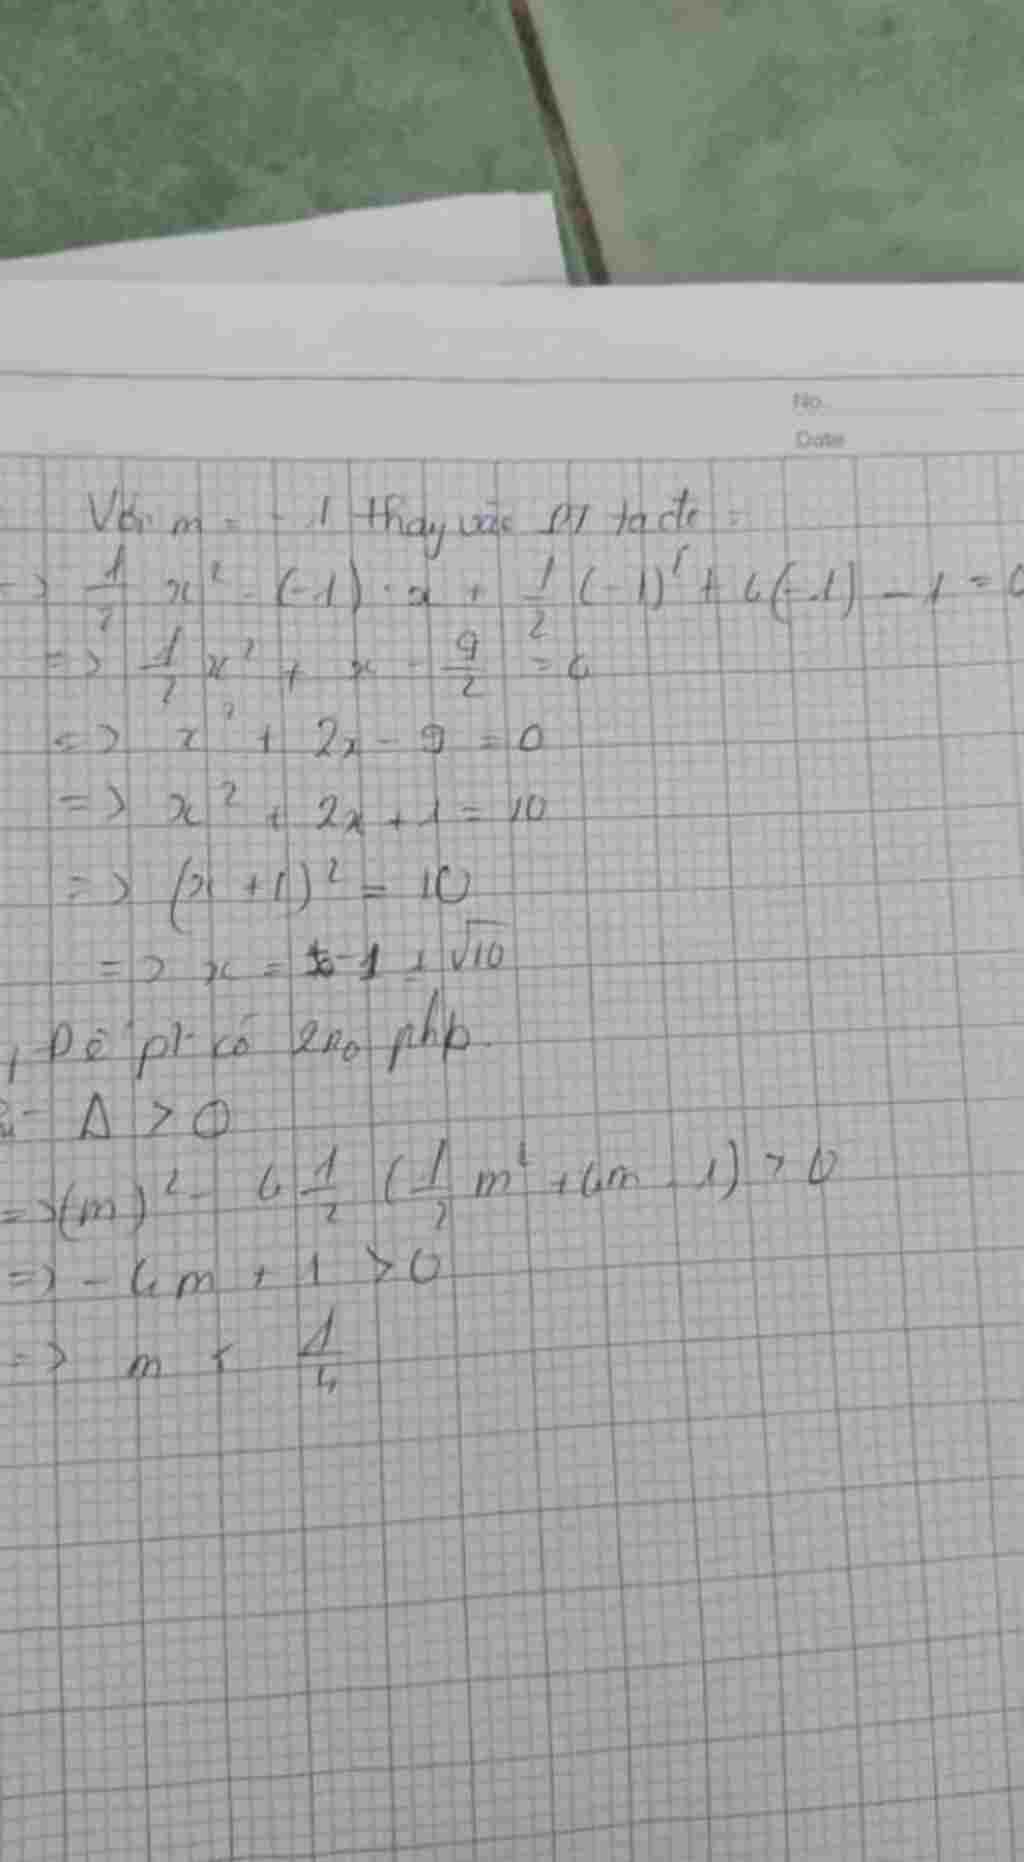 No.
Date
Với m = -1 thay vào PT ta đc :
=> 1/2 x² - (-1) · x + 1/2 (-1)² + 4(-1) - 1 = 0
=> 1/2 x² + x - 9/2 = 0
=> x² + 2x - 9 = 0
=> x² + 2x + 1 = 10
=> (x + 1)² = 10
=> x = -1 ± √10
, Để pt có 2 no phb.
Δ > 0
=> (m)² - 4 1/2 (1/2 m² + 4m - 1) > 0
=> - 4m + 1 > 0
=> m < 1/4